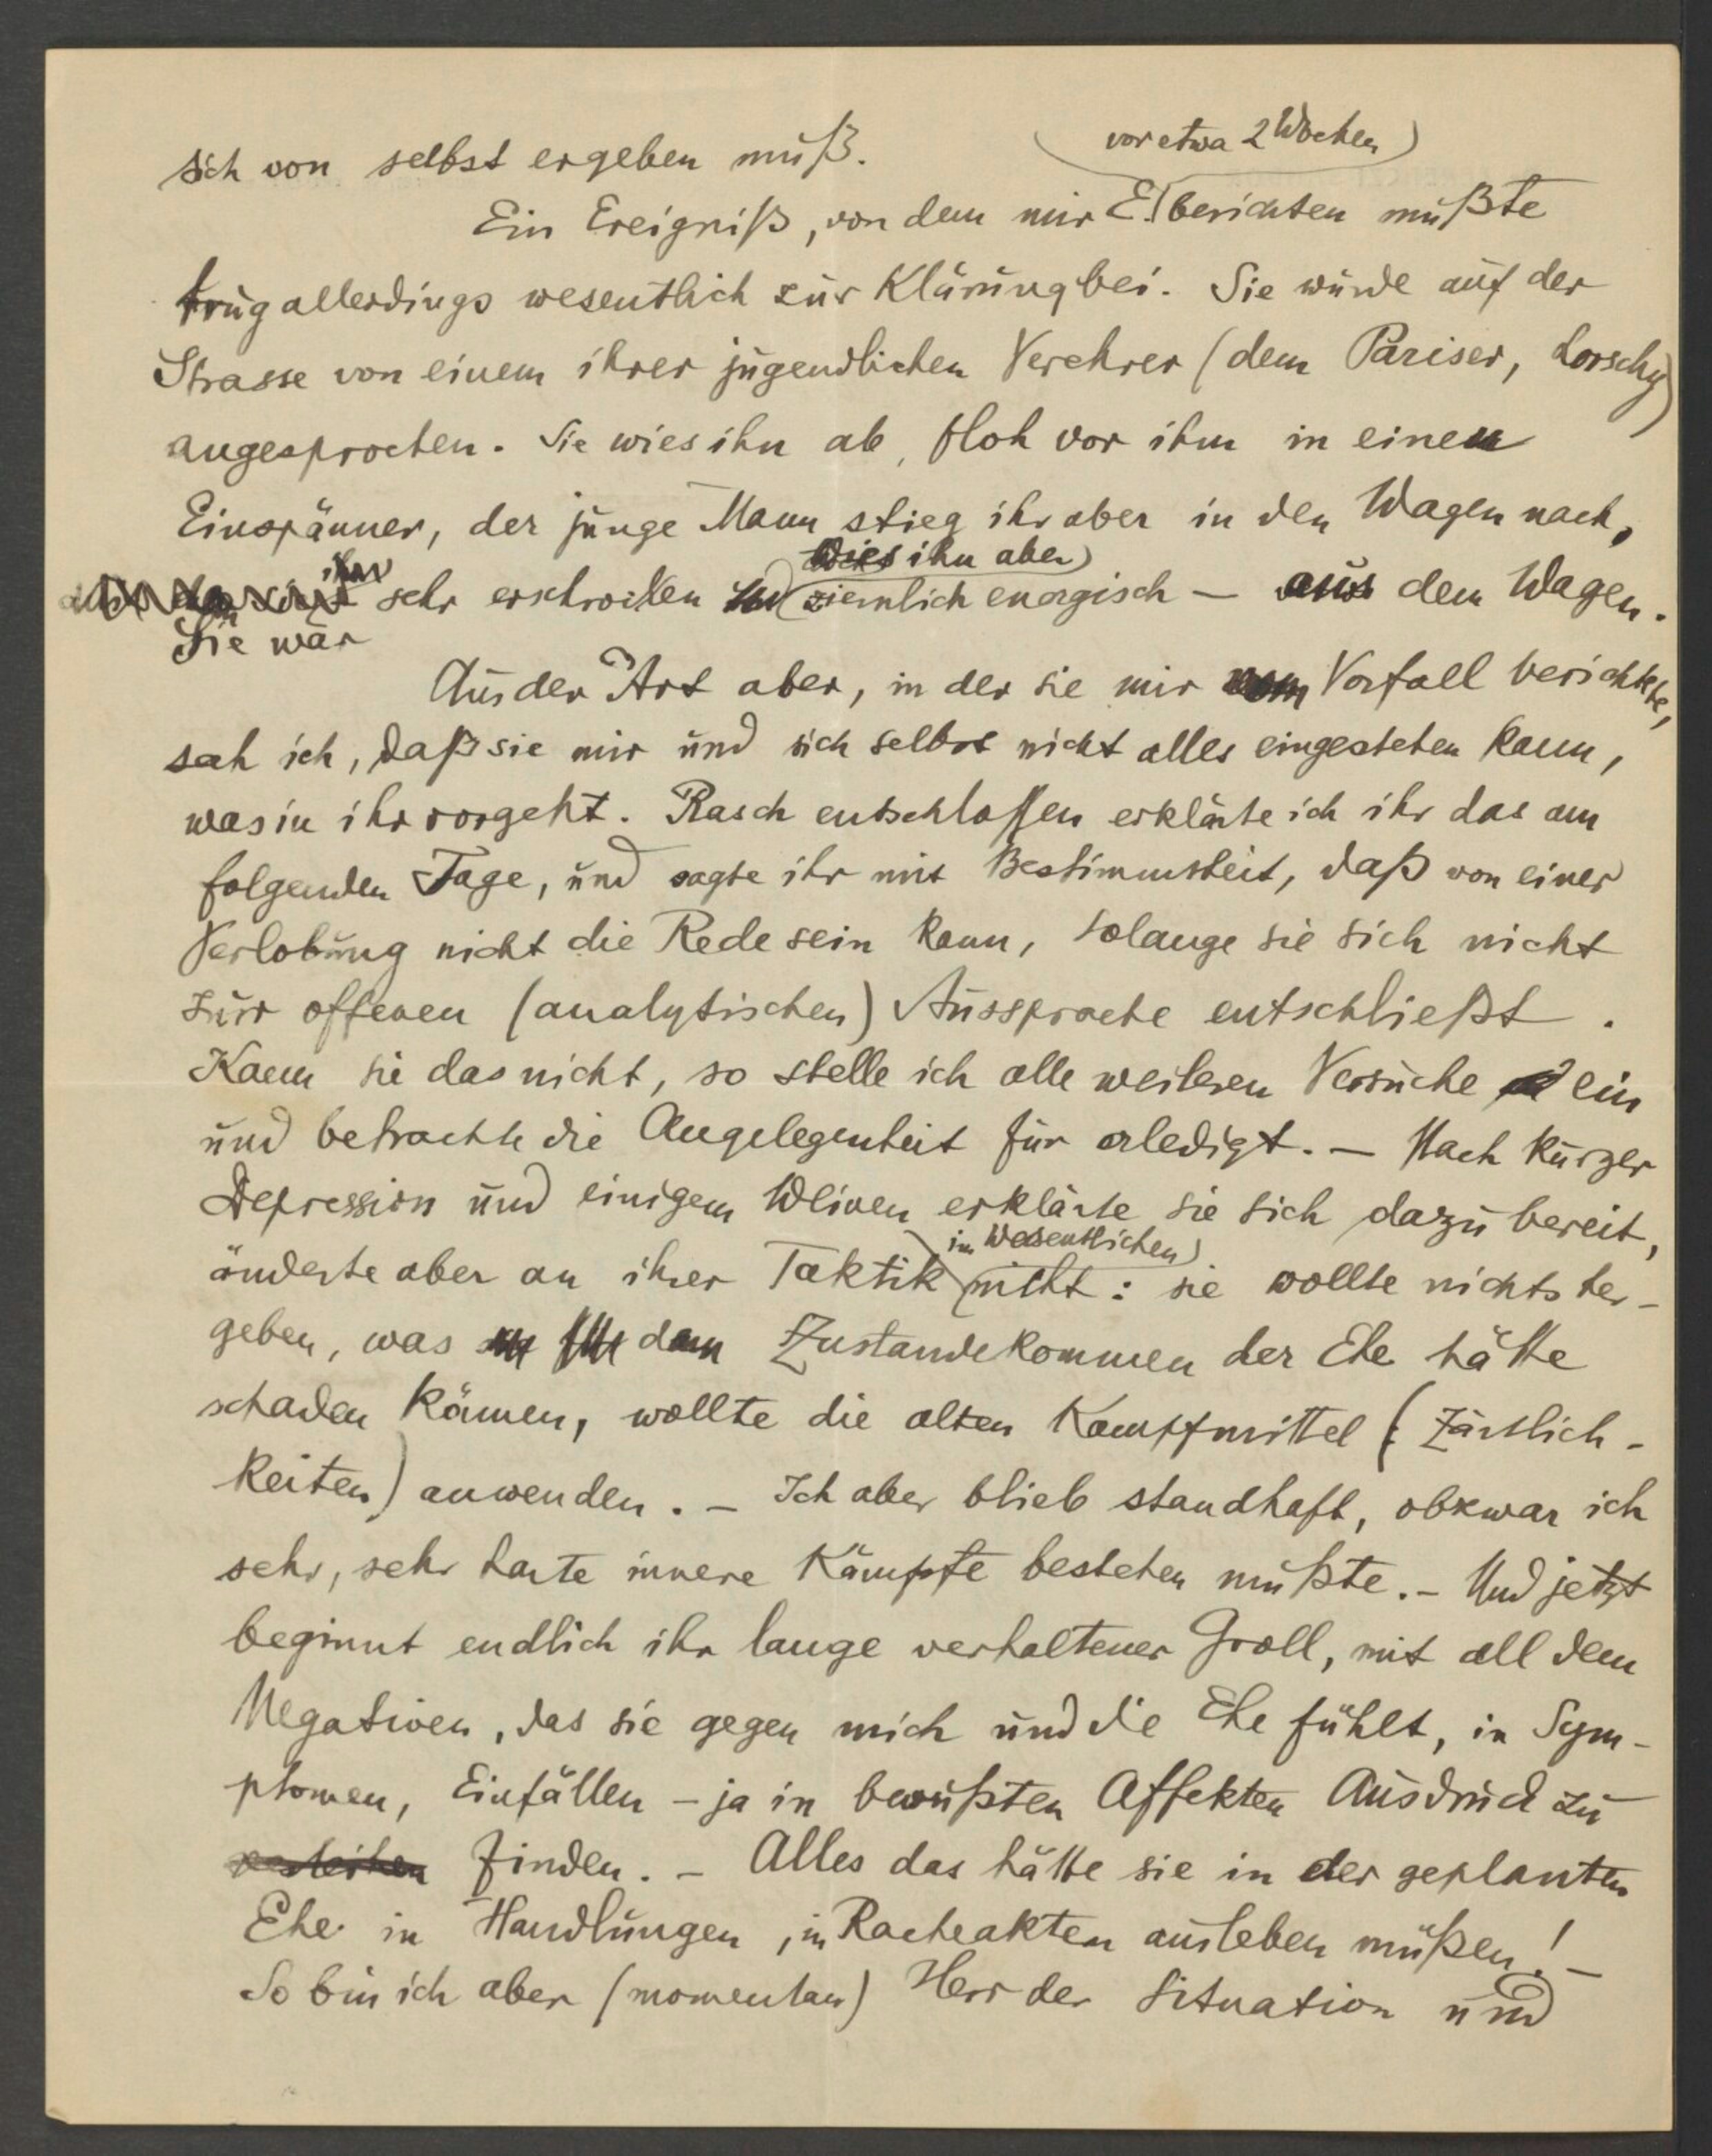 vor etwa 2 Wochen
sich von selbst ergeben muß.
Ein Ereigniß, von dem mir E. berichten mußte
trug allerdings wesentlich zur Klärung bei. Sie wurde auf der
Strasse von einem ihrer jugendlichen Verehrer (dem Pariser, Lorschy)
angesprochen. Sie wies ihn ab, floh vor ihm in einen
Einspänner, der junge Mann stieg ihr aber in den Wagen nach,
wies ihn aber
sehr erschrocken ziemlich energisch — aus dem Wagen.
Sie war
Aus der Art aber, in der sie mir vom Vorfall berichtete,
sah ich, daß sie mir und sich selbst nicht alles eingestehen kann,
was in ihr vorgeht. Rasch entschlossen erklärte ich ihr das am
folgenden Tage, und sagte ihr mit Bestimmtheit, daß von einer
Verlobung nicht die Rede sein kann, solange sie sich nicht
zur offenen (analytischen) Aussprache entschließt.
Kann sie das nicht, so stelle ich alle weiteren Versuche ein
und betrachte die Angelegenheit für erledigt. — Nach kurzer
Depression und einigem Weinen erklärte sie sich dazu bereit,
im Wesentlichen
änderte aber an ihrer Taktik nicht: sie wollte nichts her-
geben, was dem Zustandekommen der Ehe hätte
schaden können, wollte die alten Kampfmittel (Zärtlich-
keiten) anwenden. — Ich aber blieb standhaft, obzwar ich
sehr, sehr harte innere Kämpfe bestehen mußte. — Und jetzt
beginnt endlich ihr lange verhaltener Groll, mit all dem
Negativen, das sie gegen mich und die Ehe fühlt, in Sym-
ptomen, Einfällen — ja in bewußten Affekten Ausdruck zu
finden. — Alles das hätte sie in der geplanten
Ehe in Handlungen, in Racheakten ausleben müßen! —
So bin ich aber (momentan) Herr der Situation und